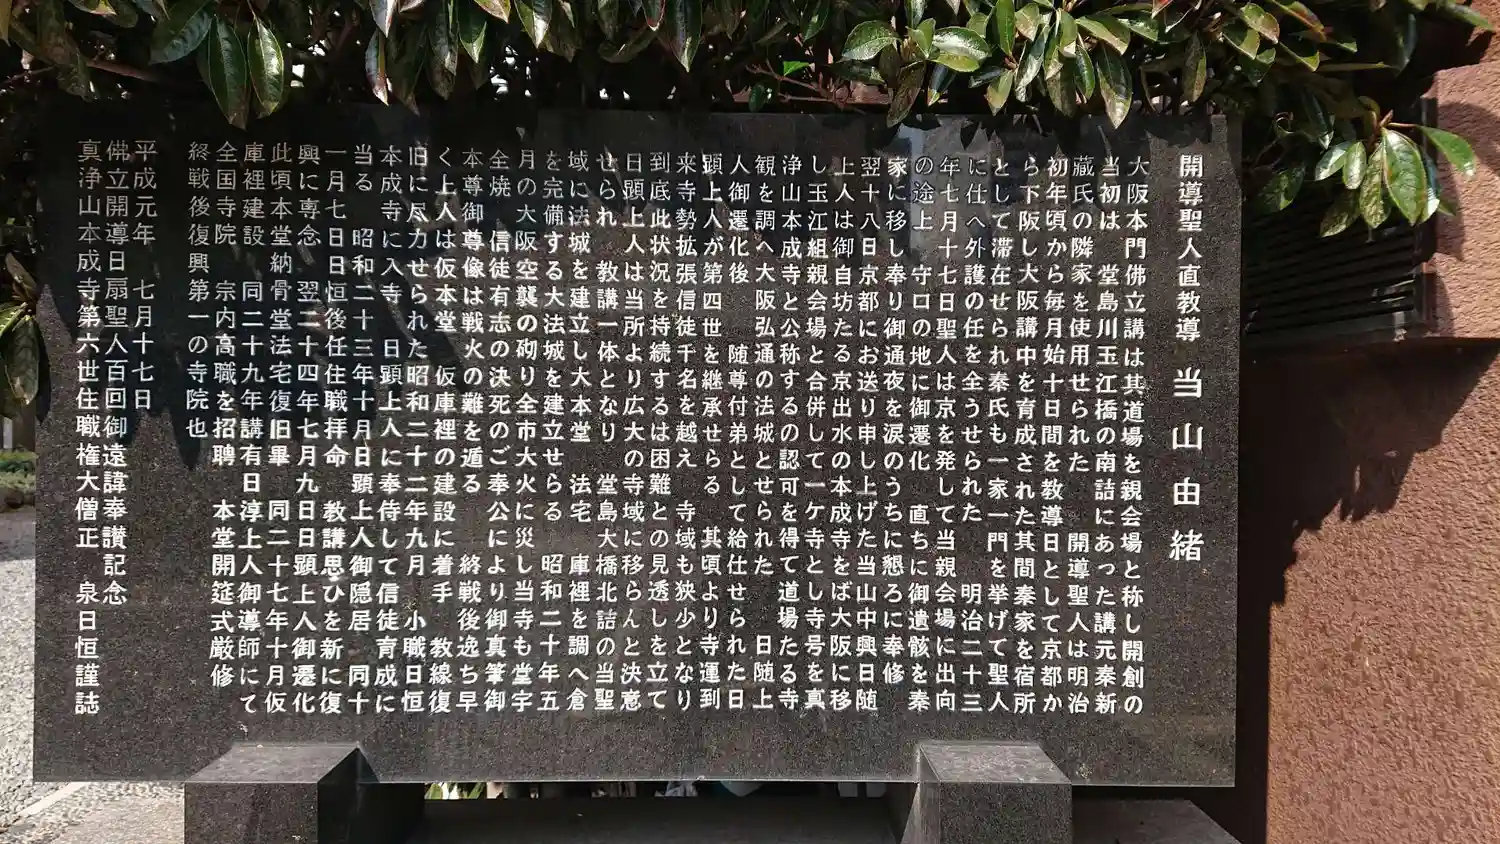 開導聖人直教導 当山由緒
大阪本門佛立講は其道場を親会場と称し開創の
当初は 堂島川玉江橋の南詰にあった講元秦新
蔵氏の隣家を使用せられた 開導聖人は明治
初年頃から毎月始十日間を教導日として京都か
ら下阪し大阪講中を育成された其間秦家を宿所
として滞在せられ秦氏も一家一門を挙げて聖人
に仕へ外護の任を全うせられた 明治二十三
年七月十七日聖人は京を発して当親会場に出向
の途上 守口の地に御遷化 直ちに御遺骸を秦
家に移し奉り御通夜を涙のうちに懇ろに奉修
翌十八日京都にお送り申し上げた当山中興日随
上人は御自坊たる京出水の本成寺をば大阪に移
し玉江組親会場と合併して一ケ寺とし寺号を真
浄山本成寺と公称するの認可を得て道場たる寺
観を調へ大阪弘通の法城とせられた 日随上
人御遷化後 随尊付弟として給仕せられた日
顕上人が第四世を継承せらる 其頃より寺運到
来寺勢拡張信徒千名を越え 寺域も狭少となり
到底此状況を持続するは困難との見透しを立て
日顕上人は当所より広大の寺域に移らんと決意
せられ 教講一体となり 堂島大橋北詰の当聖
域に法城を建立し大本堂 法宅 庫裡を調へ倉
を完備する大法城を建立せらる 昭和二十年五
月の大阪空襲の砌り全市大火に災し当寺も堂宇
全焼 信徒有志の決死のご奉公により御真筆御
本尊御尊像は戦火の難を遁る 終戦後逸ち早
く上人は仮本堂 仮庫裡の建設に着手 教線復
旧に尽力せられた昭和二十二年九月 小職日恒
本成寺に入寺 日顕上人に奉侍して信徒育成に
当る 昭和二十三年十月日顕上人御隠居 同十
一月七日日恒後任住職拝命 教講思ひを新に復
興に専念 翌二十四年七月九日日顕上人御遷化
此頃本堂納骨堂法宅復旧畢 同二十七年十月仮
庫裡建設 同二十九年講有日淳上人御導師にて
全国寺院 宗内高職を招聘 本堂開筵式厳修
終戦後復興第一の寺院也
平成元年 七月十七日
佛立開導日扇聖人百回御遠諱奉讃記念
真浄山本成寺第六世住職権大僧正 泉日恒謹誌